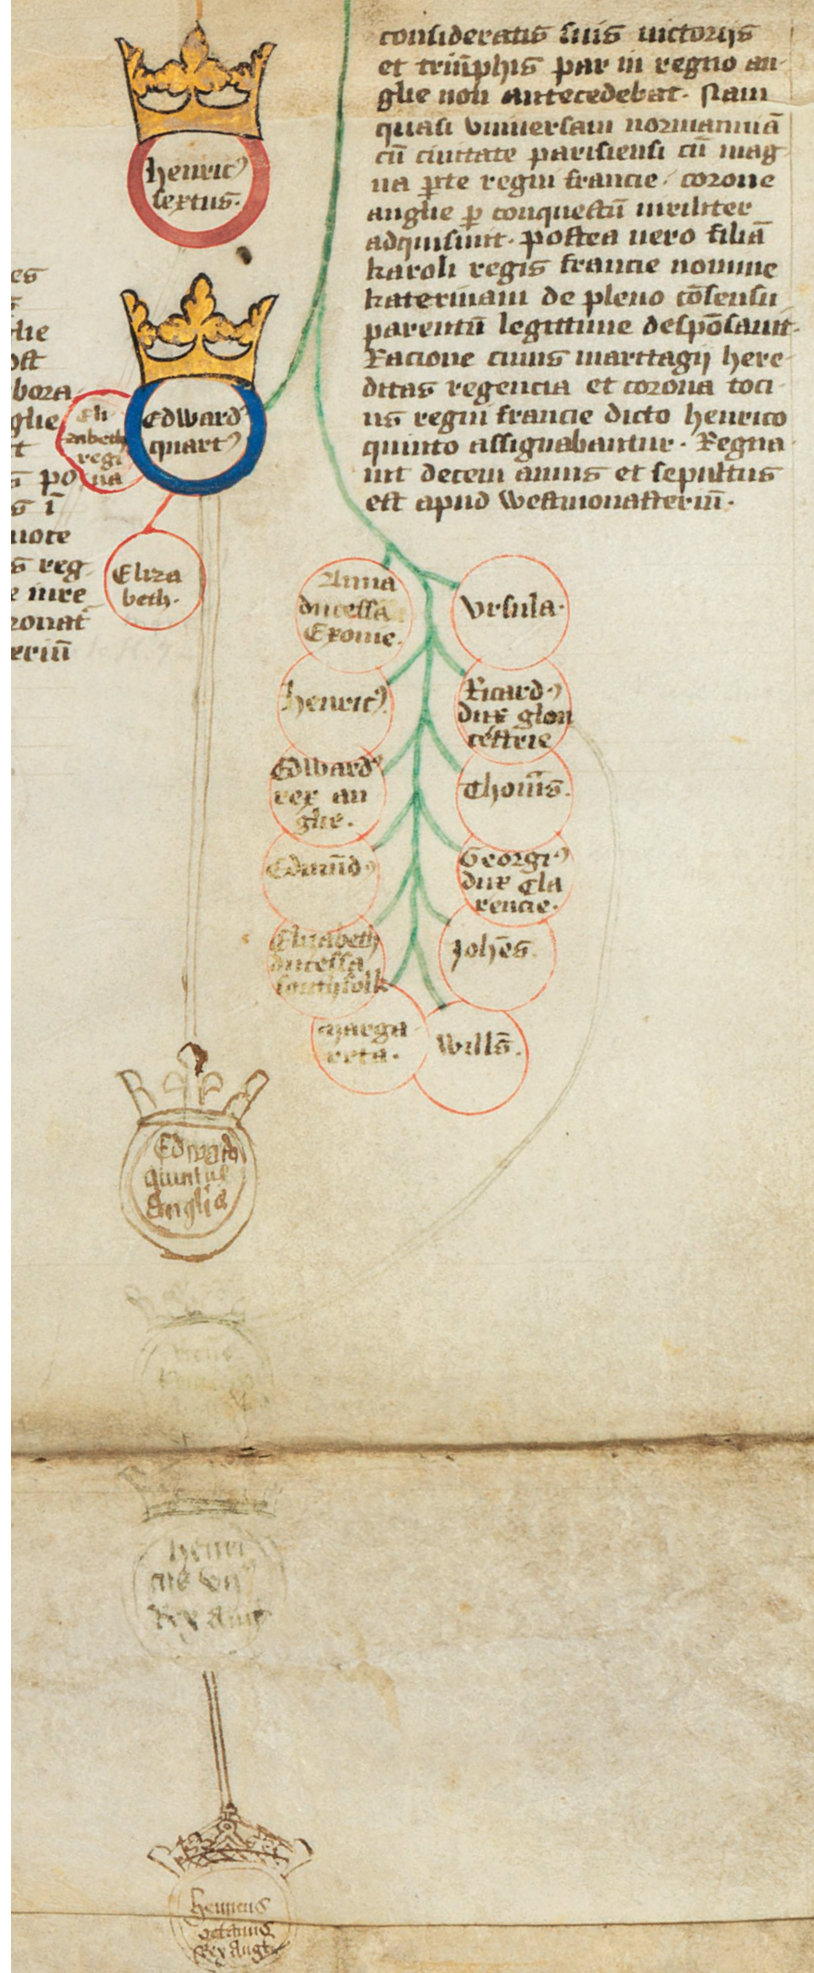 consideratis suis victorijs
et triūphis par in regno an-
glie non antecedebat. Nam
quasi vniuersam normanniā
cū ciuitate parisiensi cū mag
na ꝑte regni francie / corone
anglie ꝑ conquestū uiriliter
adquisiuit. postea uero filiā
karoli regis francie nomine
katerinam de pleno cōsensu
parentū legittime despōsauit.
Racione cuius maritagij here-
ditas regencia et corona toci-
us regni francie dicto henrico
quinto assignabantur. Regna-
uit decem annis et sepultus
est apud Westmonasteriū.
henricꝰ
sextus.
es
s
lie
ost
bora
glie
t
s po
s ī
uote
s reg-
e iure
ronat
eriū
Edwardꝰ
quartꝰ
Eli
zabeth
regi
na
Eliza
beth.
Anna
ducessa
Exonie.
Vrsula.
henricꝰ
Ricardꝰ
dux glou
cestrie
Edwardꝰ
rex an
glie.
Thom̄s.
Edmūdꝰ
Georgiꝰ
dux Cla
rencie.
Elizabeth
ducessa
southfolk
Joh̄es.
Marga
reta.
Will̄s.
Edwardꝰ
quintus
Anglie
Henri
cus vijꝰ
Rex Ang
henricus
octauus
Rex Angl